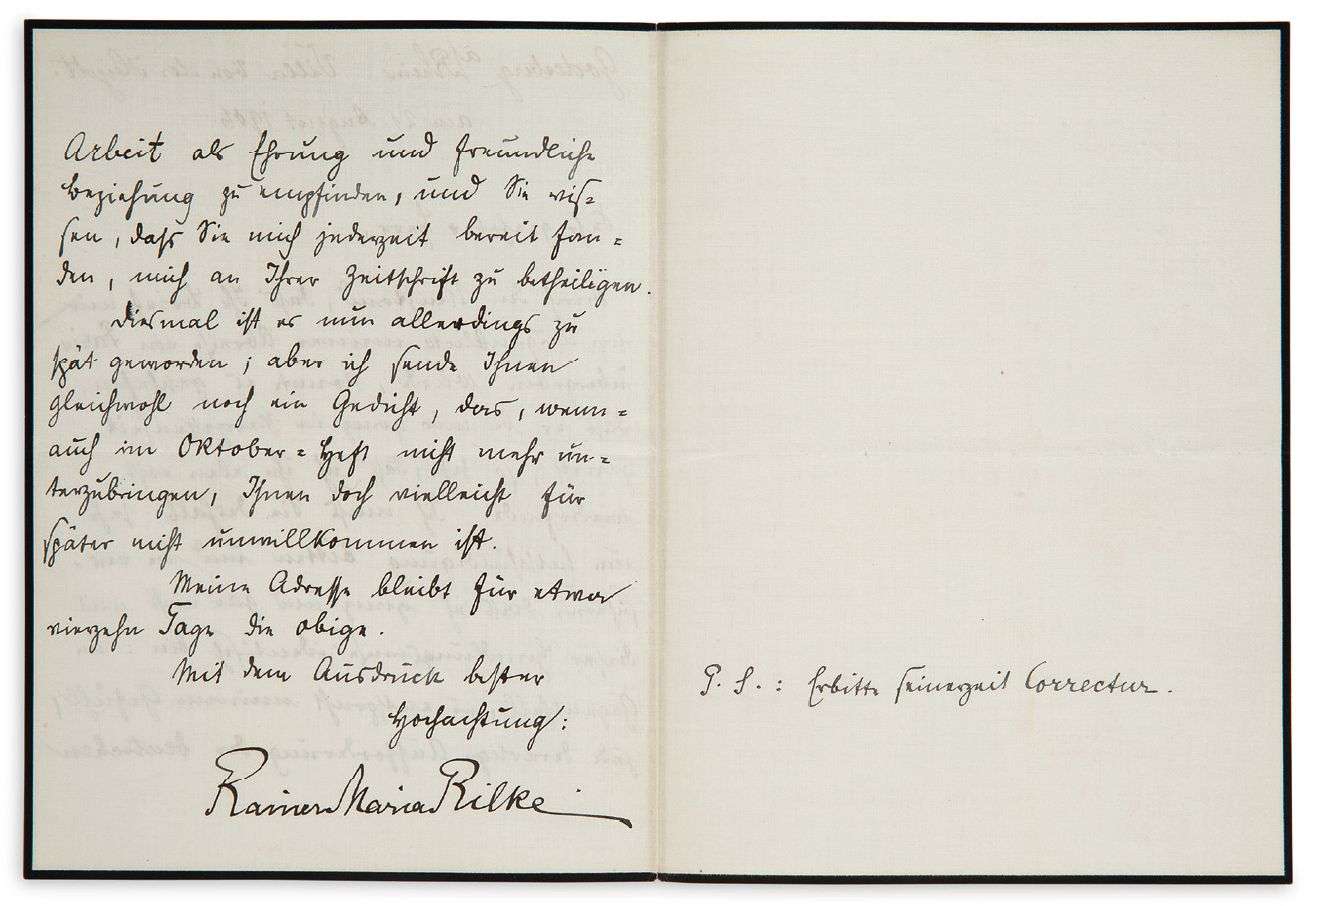 Arbeit als Ehrung und freundliche
Beziehung zu empfinden, und Sie wis=
sen, dass Sie mich jederzeit bereit fan=
den, mich an Ihrer Zeitschrift zu betheiligen.
Diesmal ist es nun allerdings zu
spät geworden; aber ich sende Ihnen
gleichwohl noch ein Gedicht, das, wenn=
auch im Oktober=Heft nicht mehr un=
terzubringen, Ihnen doch vielleicht für
später nicht unwillkommen ist.
Meine Adresse bleibt für etwa
vierzehn Tage die obige.
Mit dem Ausdruck bester
Hochachtung:
Rainer Maria Rilke
P. S.: Erbitte seinerzeit Correctur.